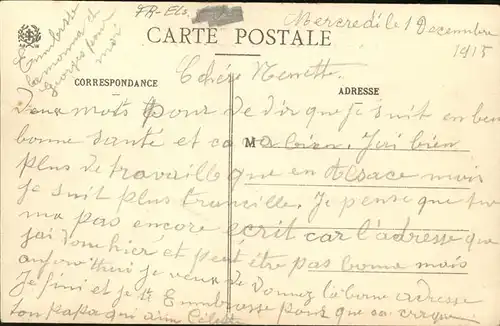 FR-Els.
Mercredi le 1 Decembre
1915
Embrasse
la moma et
Georges pour
moi
CARTE POSTALE
Chére Nenette.
CORRESPONDANCE
ADRESSE
Deux mots pour de dir que je suit en ben
bonne santé et ca va bien. J'ai bien
M
plus de travaille que en Alsace mais
je suit plus tranculle. Je pense que tu
ma pas encore ecrit car l'adresse que
jai donc hiér et peut être pas bonne mais
aujourd'hui je veux de donnez la bonne adresse
Je fini et je t' Emmbrasse pour que sa
ton papa qui aim